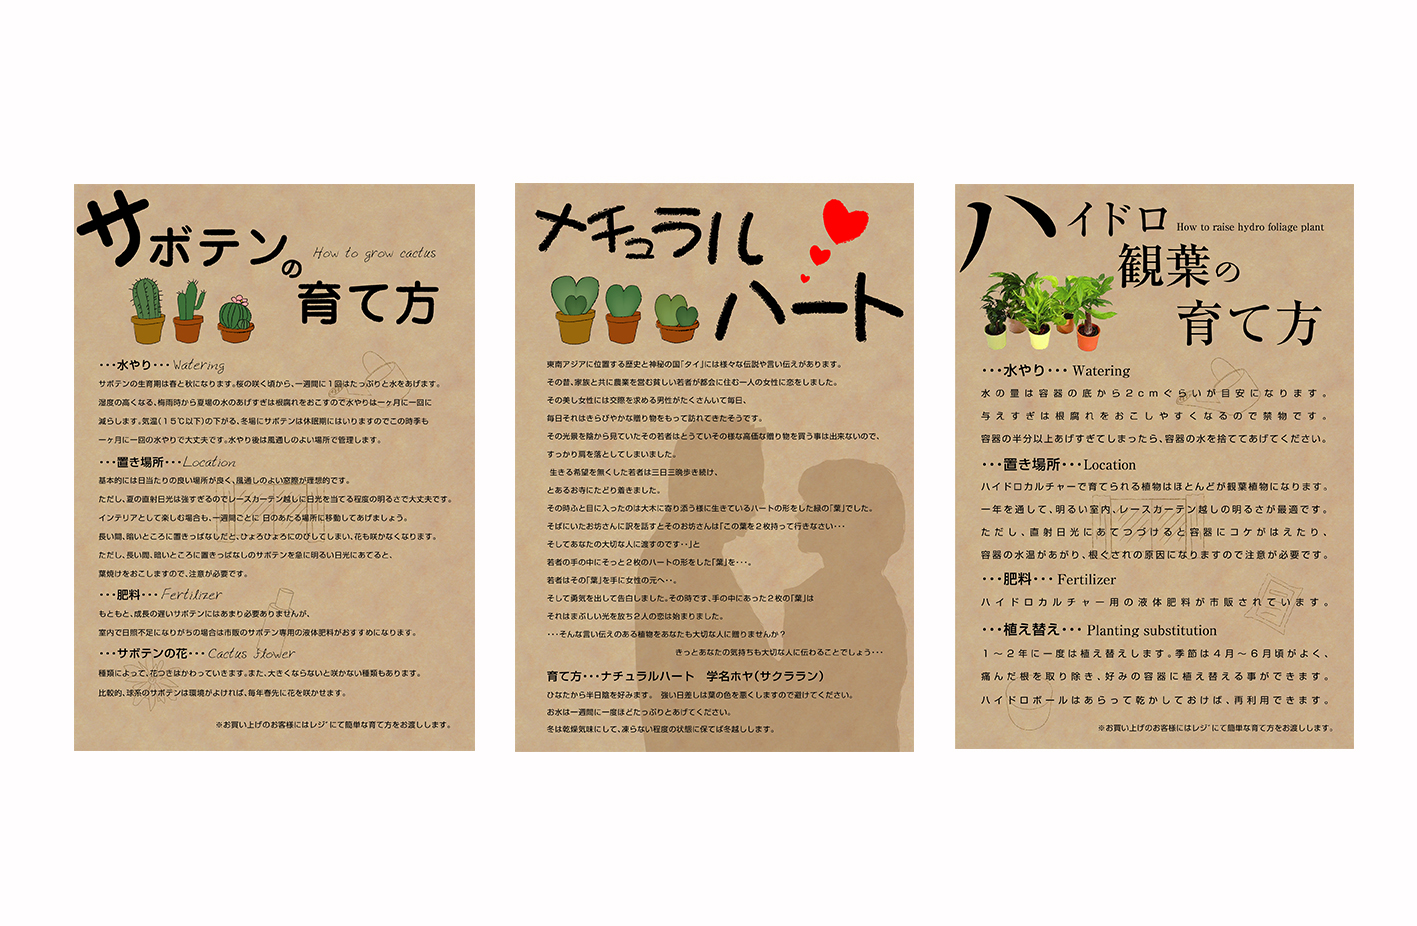 サボテンの
How to grow cactus
育て方
･･･水やり･･･ Watering
サボテンの生育期は春と秋になります。桜の咲く頃から、一週間に１回はたっぷりと水をあげます。
湿度の高くなる、梅雨時から夏場の水のあげすぎは根腐れをおこすので水やりは一ヶ月に一回に
減らします。気温(１５℃以下)の下がる、冬場にサボテンは休眠期にはいりますのでこの時季も
一ヶ月に一回の水やりで大丈夫です。水やり後は風通しのよい場所で管理します。
･･･置き場所･･･Location
基本的には日当たりの良い場所が良く、風通しのよい窓際が理想的です。
ただし、夏の直射日光は強すぎるのでレースカーテン越しに日光を当てる程度の明るさで大丈夫です。
インテリアとして楽しむ場合も、一週間ごとに 日のあたる場所に移動してあげましょう。
長い間、暗いところに置きっぱなしだと、ひょろひょろにのびしてしまい、花も咲かなくなります。
ただし、長い間、暗いところに置きっぱなしのサボテンを急に明るい日光にあてると、
葉焼けをおこしますので、注意が必要です。
･･･肥料･･･ Fertilizer
もともと、成長の遅いサボテンにはあまり必要ありませんが、
室内で日照不足になりがちの場合は市販のサボテン専用の液体肥料がおすすめになります。
･･･サボテンの花･･･ Cactus flower
種類によって、花つきはかわっていきます。また、大きくならないと咲かない種類もあります。
比較的、球系のサボテンは環境がよければ、毎年春先に花を咲かせます。
※お買い上げのお客様にはレジﾞにて簡単な育て方をお渡しします。
ナチュラル
ハート
東南アジアに位置する歴史と神秘の国｢タイ｣には様々な伝説や言い伝えがあります。
その昔、家族と共に農業を営む貧しい若者が都会に住む一人の女性に恋をしました。
その美しい女性には交際を求める男性がたくさんいて毎日、
毎日それはきらびやかな贈り物をもって訪れてきたそうです。
その光景を陰から見ていたその若者はとうていその様な高価な贈り物を買う事は出来ないので、
すっかり肩を落としてしまいました。
生きる希望を無くした若者は三日三晩歩き続け、
とあるお寺にたどり着きました。
その時ふと目に入ったのは大木に寄り添う様に生きているハートの形をした緑の｢葉｣でした。
そばにいたお坊さんに訳を話すとそのお坊さんは｢この葉を２枚持って行きなさい･･･
そしてあなたの大切な人に渡すのです･･｣と
若者の手の中にそっと２枚のハートの形をした｢葉｣を･･･。
若者はその｢葉｣を手に女性の元へ･･。
そして勇気を出して告白しました。その時です、手の中にあった２枚の｢葉｣は
それはまぶしい光を放ち２人の恋は始まりました。
･･･そんな言い伝えのある植物をあなたも大切な人に贈りませんか？
きっとあなたの気持ちも大切な人に伝わることでしょう･･･
育て方･･･ナチュラルハート　学名ホヤ(サクララン)
ひなたから半日陰を好みます。　強い日差しは葉の色を悪くしますので避けてください。
お水は一週間に一度ほどたっぷりとあげてください。
冬は乾燥気味にして、凍らない程度の状態に保てば冬越しします。
ハイドロ
How to raise hydro foliage plant
観葉の
育て方
･･･水やり･･･ Watering
水の量は容器の底から２cmぐらいが目安になります。
与えすぎは根腐れをおこしやすくなるので禁物です。
容器の半分以上あげすぎてしまったら、容器の水を捨ててあげてください。
･･･置き場所･･･Location
ハイドロカルチャーで育てられる植物はほとんどが観葉植物になります。
一年を通して、明るい室内、レースカーテン越しの明るさが最適です。
ただし、直射日光にあてつづけると容器にコケがはえたり、
容器の水温があがり、根ぐされの原因になりますので注意が必要です。
･･･肥料･･･ Fertilizer
ハイドロカルチャー用の液体肥料が市販されています。
･･･植え替え･･･ Planting substitution
１～２年に一度は植え替えします。季節は４月～６月頃がよく、
痛んだ根を取り除き、好みの容器に植え替える事ができます。
ハイドロボールはあらって乾かしておけば、再利用できます。
※お買い上げのお客様にはレジﾞにて簡単な育て方をお渡しします。